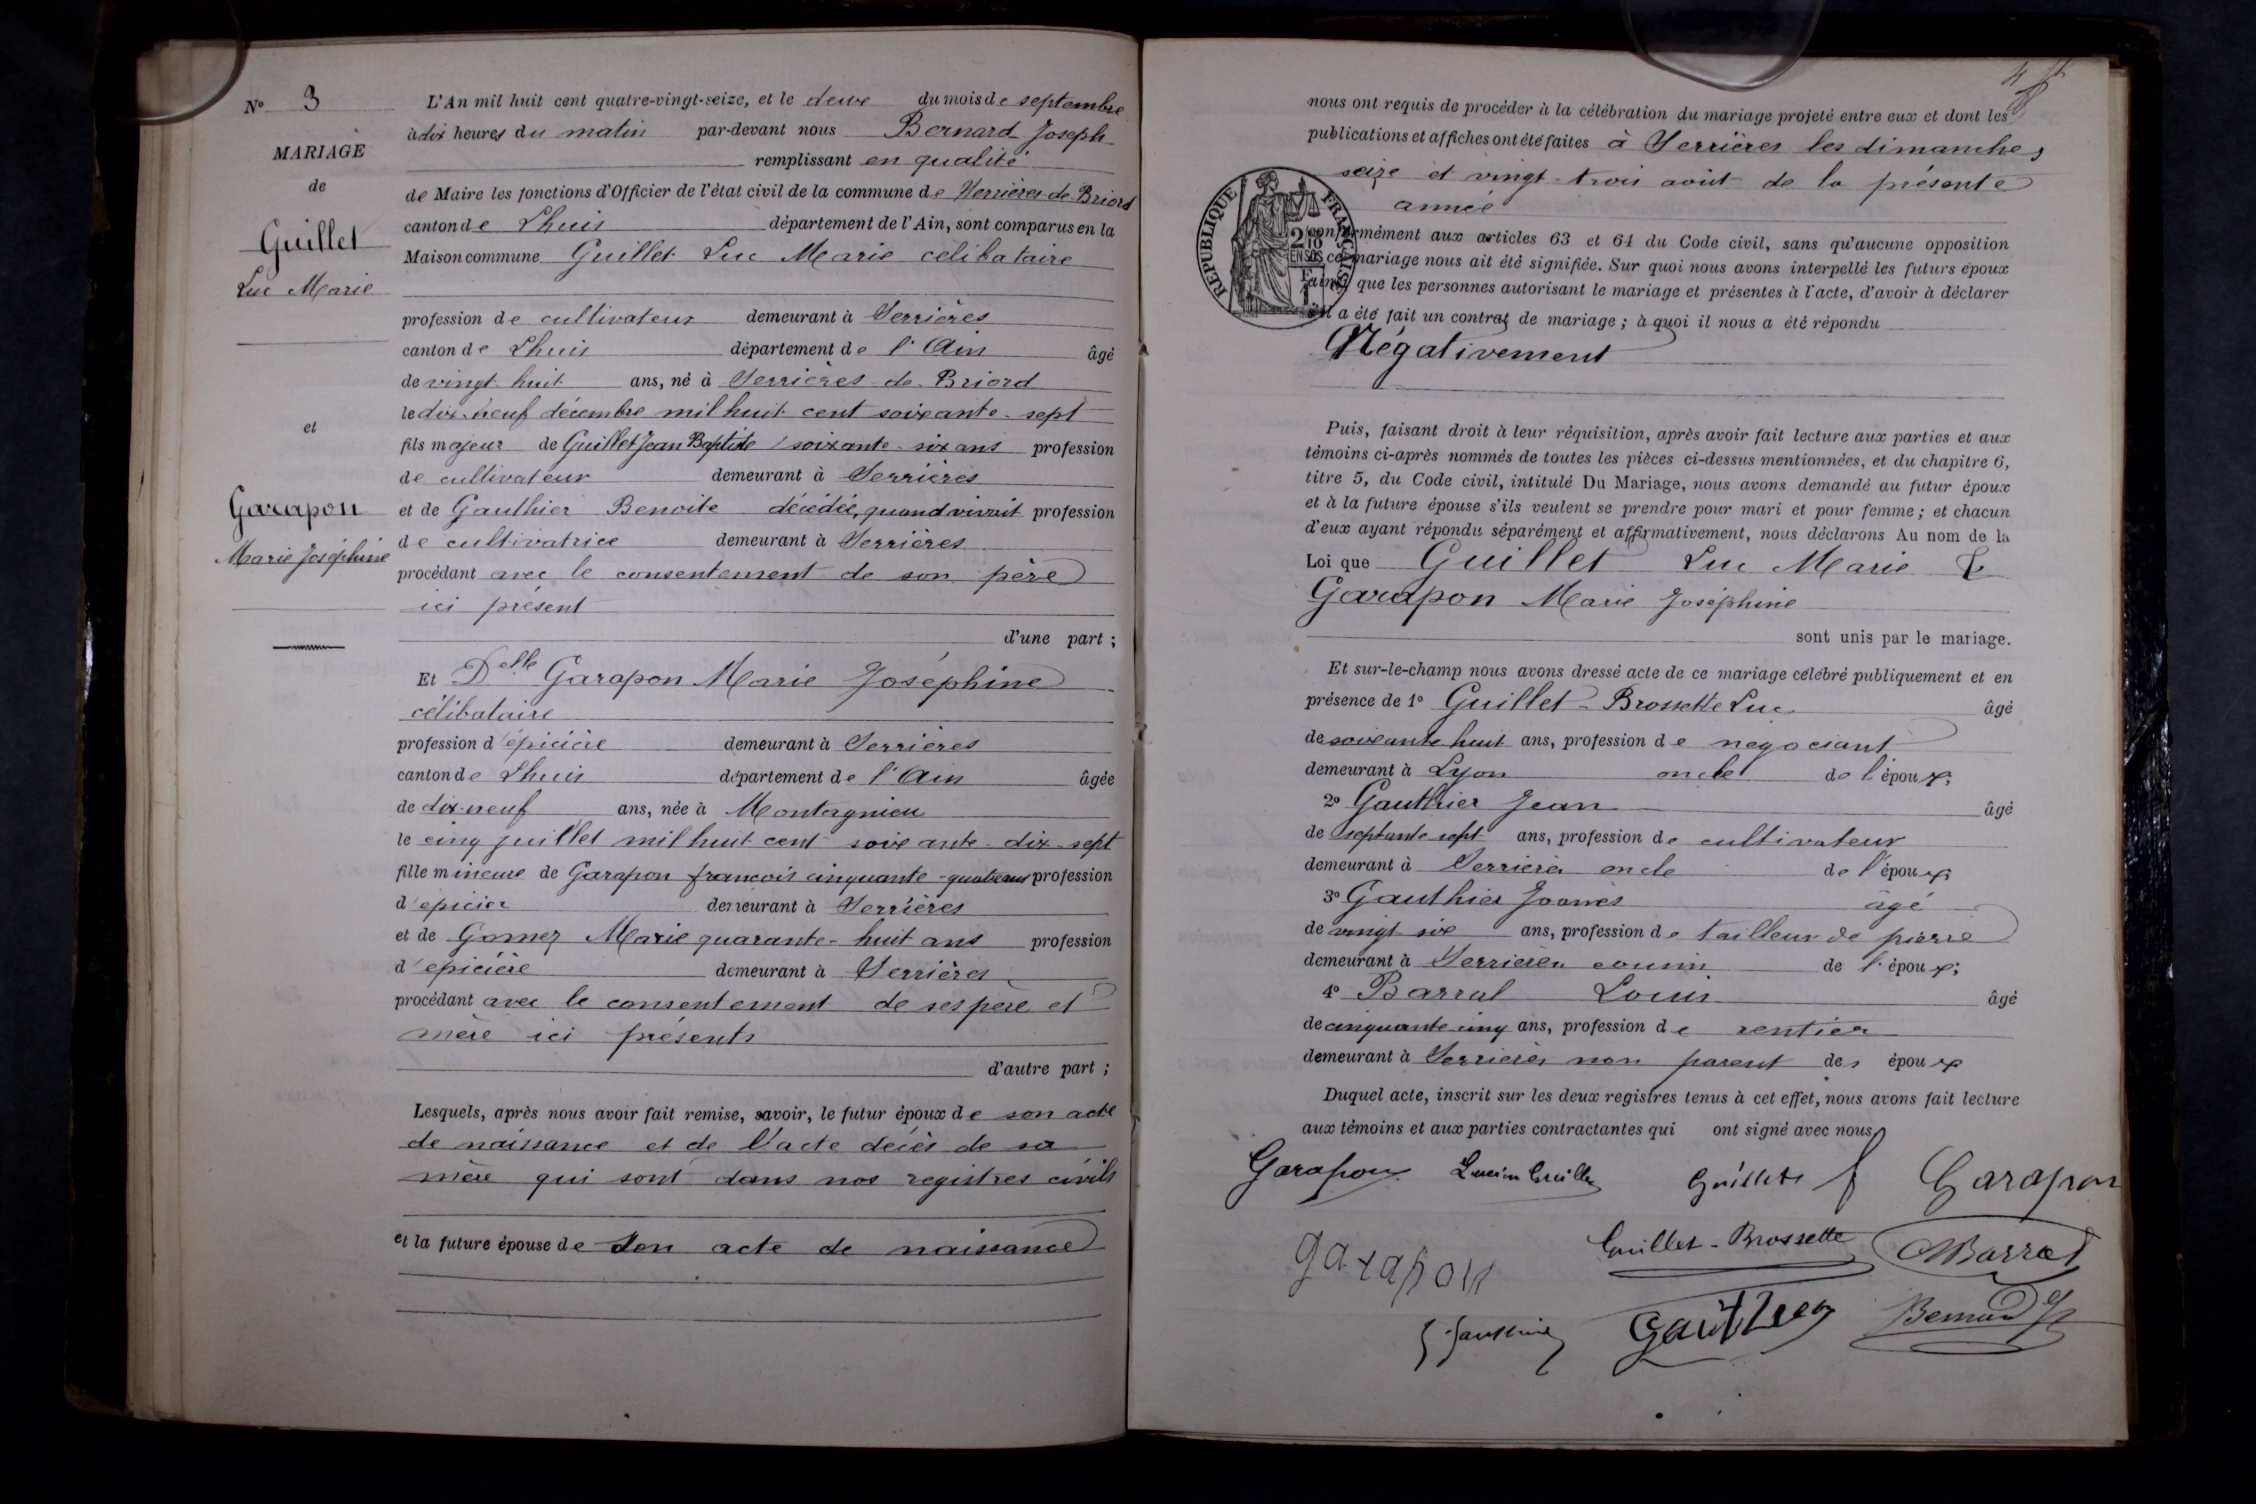 N° 3
MARIAGE
de
Guillet
Luc Marie
et
Garapon
Marie Joséphine
L'An mil huit cent quatre-vingt-seize, et le deux du mois de septembre
à dix heures du matin par-devant nous Bernard Joseph
remplissant en qualité
de Maire les fonctions d'Officier de l'état civil de la commune de Serrières-de-Briord
canton de Lhuis département de l'Ain, sont comparus en la
Maison commune Guillet Luc Marie célibataire
profession de cultivateur demeurant à Serrières
canton de Lhuis département de l'Ain âgé
de vingt huit ans, né à Serrières de Briord
le dix-neuf décembre mil huit cent soixante-sept
fils majeur de Guillet Jean Baptiste soixante-six ans profession
de cultivateur demeurant à Serrières
et de Gauthier Benoite décédée, quand vivait profession
de cultivatrice demeurant à Serrières
procédant avec le consentement de son père
ici présent
d'une part ;
Et Delle Garapon Marie Joséphine
célibataire
profession d'épicière demeurant à Serrières
canton de Lhuis département de l'Ain âgée
de dix-neuf ans, née à Montagnieu
le cinq juillet mil huit cent soixante-dix-sept
fille mineure de Garapon francois cinquante-quatre ans profession
d'epicier demeurant à Serrières
et de Gomez Marie quarante-huit ans profession
d'epicière demeurant à Serrières
procédant avec le consentement de ses père et
mère ici présents
d'autre part ;
Lesquels, après nous avoir fait remise, savoir, le futur époux de son acte
de naissance et de l'acte décès de sa
mère qui sont dans nos registres civils
et la future épouse de son acte de naissance
nous ont requis de procéder à la célébration du mariage projeté entre eux et dont les
publications et affiches ont été faites à Serrières les dimanches
seize et vingt-trois août de la présente
année
REPUBLIQUE FRANÇAISE
conformément aux articles 63 et 64 du Code civil, sans qu'aucune opposition
à ce mariage nous ait été signifiée. Sur quoi nous avons interpellé les futurs époux
ainsi que les personnes autorisant le mariage et présentes à l'acte, d'avoir à déclarer
s'il a été fait un contrat de mariage ; à quoi il nous a été répondu
Négativement
Puis, faisant droit à leur réquisition, après avoir fait lecture aux parties et aux
témoins ci-après nommés de toutes les pièces ci-dessus mentionnées, et du chapitre 6,
titre 5, du Code civil, intitulé Du Mariage, nous avons demandé au futur époux
et à la future épouse s'ils veulent se prendre pour mari et pour femme ; et chacun
d'eux ayant répondu séparément et affirmativement, nous déclarons Au nom de la
Loi que Guillet Luc Marie &
Garapon Marie Joséphine
sont unis par le mariage.
Et sur-le-champ nous avons dressé acte de ce mariage célébré publiquement et en
présence de 1° Guillet-Brossette Luc âgé
de soixante huit ans, profession de negociant
demeurant à Lyon oncle de l'époux;
2° Gauthier Jean âgé
de septante sept ans, profession de cultivateur
demeurant à Serrières oncle de l'époux;
3° Gauthier Joanès âgé
de vingt six ans, profession de tailleur de pierre
demeurant à Serrières cousin de l'époux;
4° Barral Louis âgé
de cinquante cinq ans, profession de rentier
demeurant à Serrières non parent des époux
Duquel acte, inscrit sur les deux registres tenus à cet effet, nous avons fait lecture
aux témoins et aux parties contractantes qui ont signé avec nous
Garapon Guillet Garapon
garapon Guillet-Brossette Barral
Gauthier Bernard